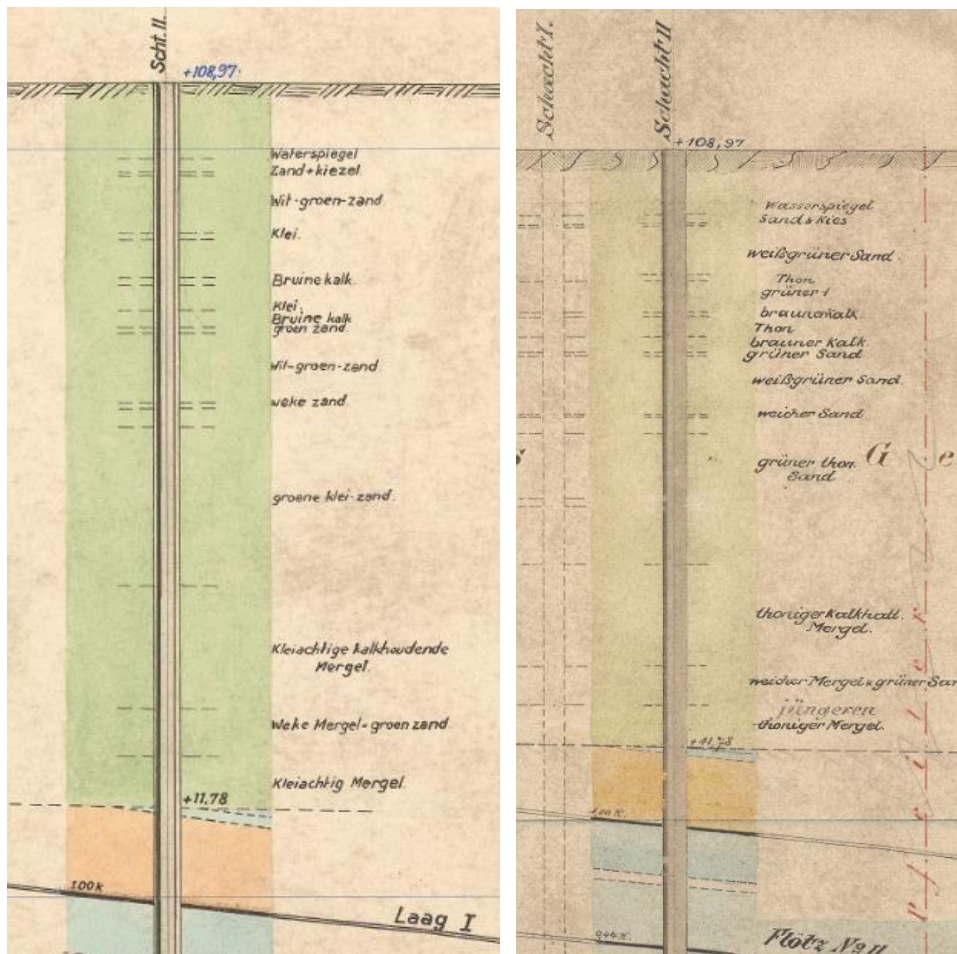 Scht. II.
+108,97.
Waterspiegel
Zand + kiezel.
Wit-groen-zand.
Klei.
Bruine kalk.
Klei.
Bruine kalk
groen zand.
Wit-groen-zand.
weke zand.
groene klei-zand.
Kleiachtige kalkhoudende
Mergel.
Weke Mergel-groen zand.
Kleiachtig Mergel.
+11.78
1.00 K
Laag I
Schacht I.
Schacht II
+108,97
Wasserspiegel
Sand & Kies
weißgrüner Sand.
Thon
grüner
braunerkalk.
Thon
brauner Kalk.
grüner Sand
weißgrüner Sand.
weicher Sand
grüner thon.
Sand
G e
thoniger Kalkhalt.
Mergel.
weicher Mergel & grüner San
jüngeren
thoniger Mergel.
1,00 K.
0,44 K.
Flötz No II